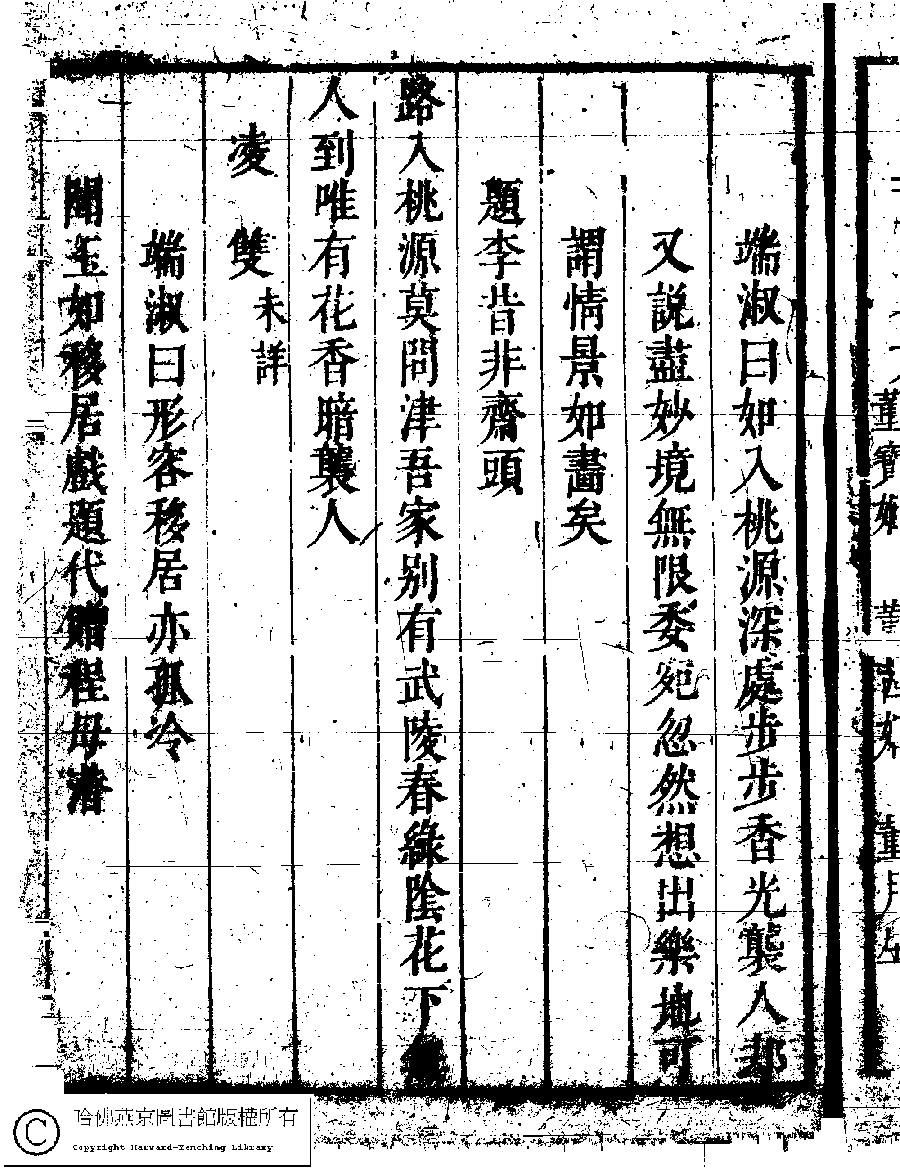 端淑曰如入桃源深處步步香光襲人却
又說盡妙境無限委宛忽然想出樂地可
謂情景如畵矣
題李昔非齋頭
路入桃源莫問津吾家別有武陵春綠陰花下無
人到唯有花香暗襲人
凌雙未詳
端淑曰形容移居亦孤冷
聞玉如移居戲題代贈程母潘
哈佛燕京圖書館版權所有
Copyright Harvard-Yenching Library